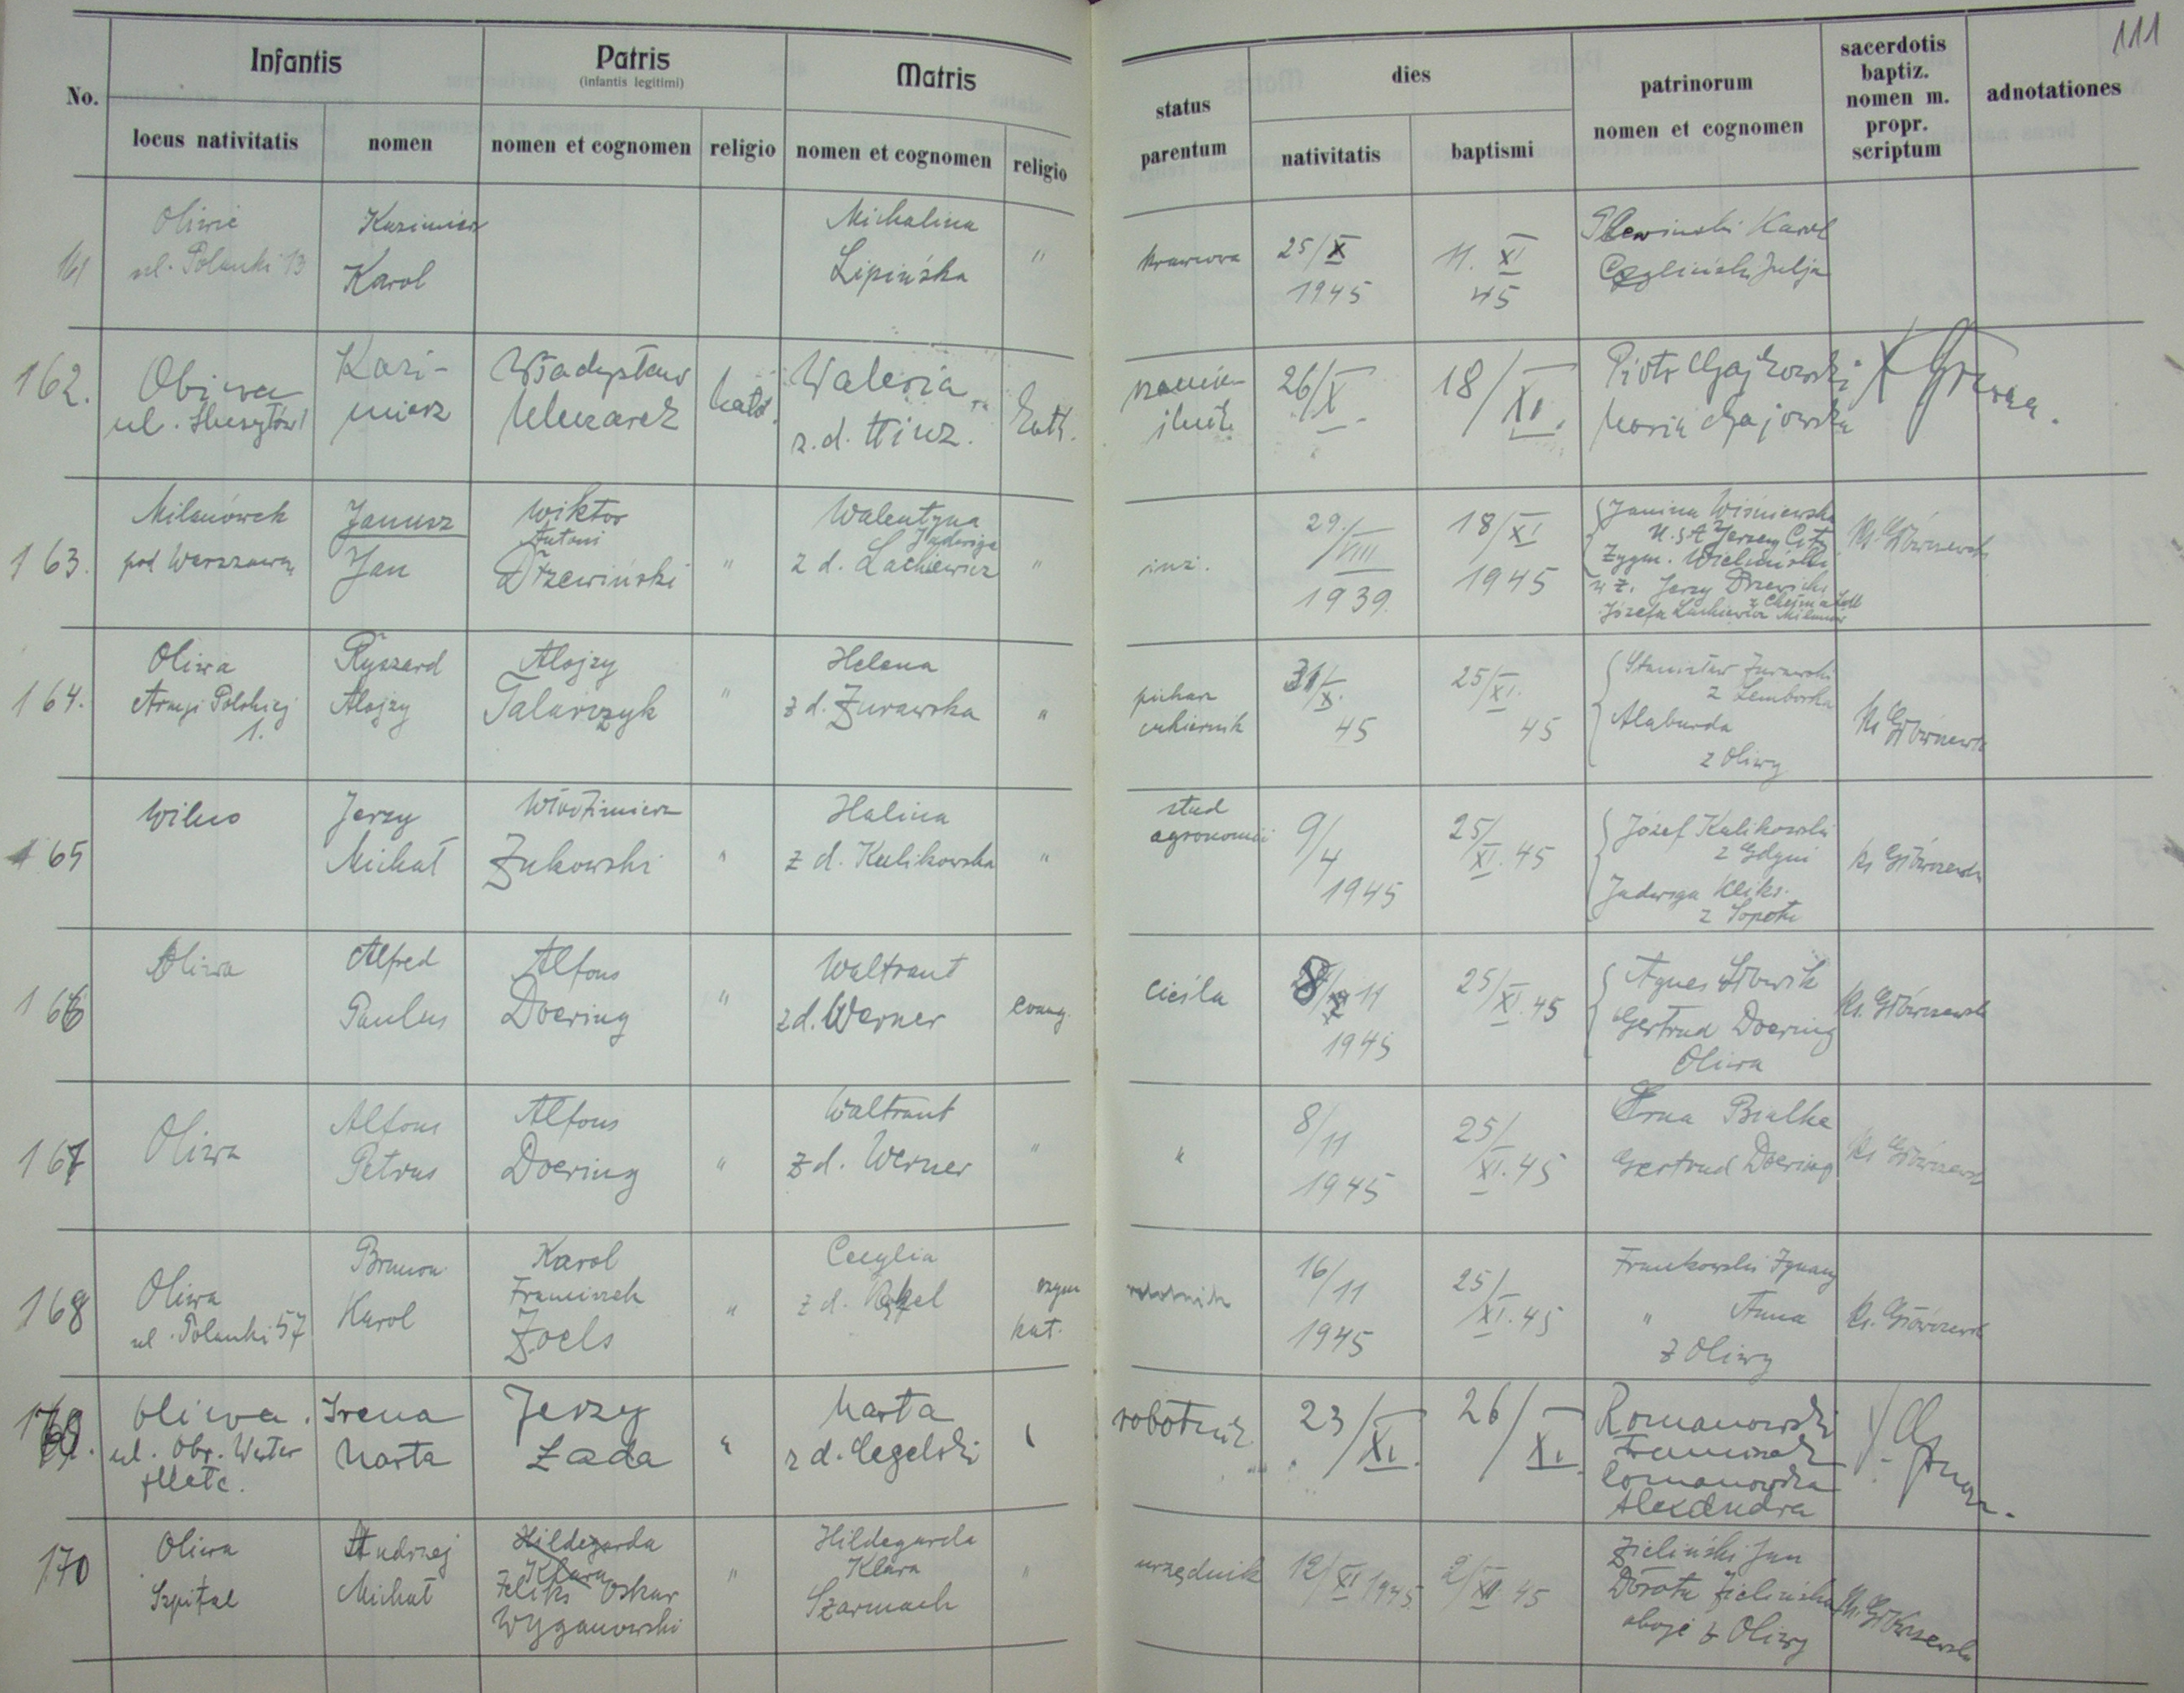 111
No.
Infantis
Patris
(infantis legitimi)
Matris
status
parentum
dies
patrinorum
nomen et cognomen
sacerdotis
baptiz.
nomen m.
propr.
scriptum
adnotationes
locus nativitatis
nomen
nomen et cognomen
religio
nomen et cognomen
religio
nativitatis
baptismi
161
Oliwie
ul. Polanki 13
Kazimierz
Karol
Michalina
Lipińska
"
krawcowa
25/X
1945
11. XI
45
Plewinski Karol
Julja
162.
Oliwa
ul.
Kazi-
mierz
Władysław
kath.
Waleria
z.d. Hinz.
kath.
26/X
18/XI.
Piotr Gajkowski
Maria Gajowska
163.
Milanówek
pod Warszawą
Janusz
Jan
Wiktor
Antoni
Drzewiński
"
Walentyna
Jadwiga
z d. Lachiewicz
"
inż.
29./VIII
1939.
18/XI
1945
Janina Wiśniewska
U.S.A Jersey City
Zygm. Wieliński
w z. Jerzy
Józefa Lachiewicz
Ks. Główczewski
164.
Oliwa
Armji Polskiej
1.
Ryszard
Alojzy
Alojzy
Talarczyk
"
Helena
z d. Żurawska
"
piekarz
cukiernik
31/X.
45
25/XI.
45
Stanisław Żurawski
z Lemborka
Alaburda
z Oliwy
Ks Główczewski
165
Wilno
Jerzy
Michał
Włodzimierz
Żukowski
"
Halina
z d. Kulikowska
"
stud
agronomii
9/4
1945
25/XI. 45
Józef Kulikowski
z Gdyni
Jadwiga
z Sopotu
ks Główczewski
166
Oliwa
Alfred
Paulus
Alfons
Doering
"
Waltraut
z d. Werner
evang.
cieśla
8/11
1945
25/XI. 45
Agnes Słowik
Gertrud Doering
Oliwa
Ks. Główczewski
167
Oliwa
Alfons
Petrus
Alfons
Doering
"
Waltraut
z d. Werner
"
"
8/11
1945
25/XI. 45
Erna Bialke
Gertrud Doering
Ks Główczewski
168
Oliwa
ul. Polanki 57
Brunon
Karol
Karol
Franciszek
Zoels
"
Cecylia
z d.
rzym
kat.
robotnik
16/11
1945
25/XI. 45
Frankowski Ignacy
" Anna
z Oliwy
Ks. Główczewski
169.
Oliwa.
ul. Obr. Wester
platte.
Irena
Marta
Jerzy
Łada
"
Marta
z d. Cegelski
"
robotnik
23/XI.
26/XI.
Romanowski
Franciszek
Romanowska
Alexandra
170
Oliwa
Szpital
Andrzej
Michał
Hildegarda
Klara
Feliks Oskar
Wyganowski
"
Hildegarda
Klara
Szarmach
"
urzędnik
12/XI 1945
2/XII 45
Zieliński Jan
Dorota Zielińska
oboje z Oliwy
Ks. Główczewski